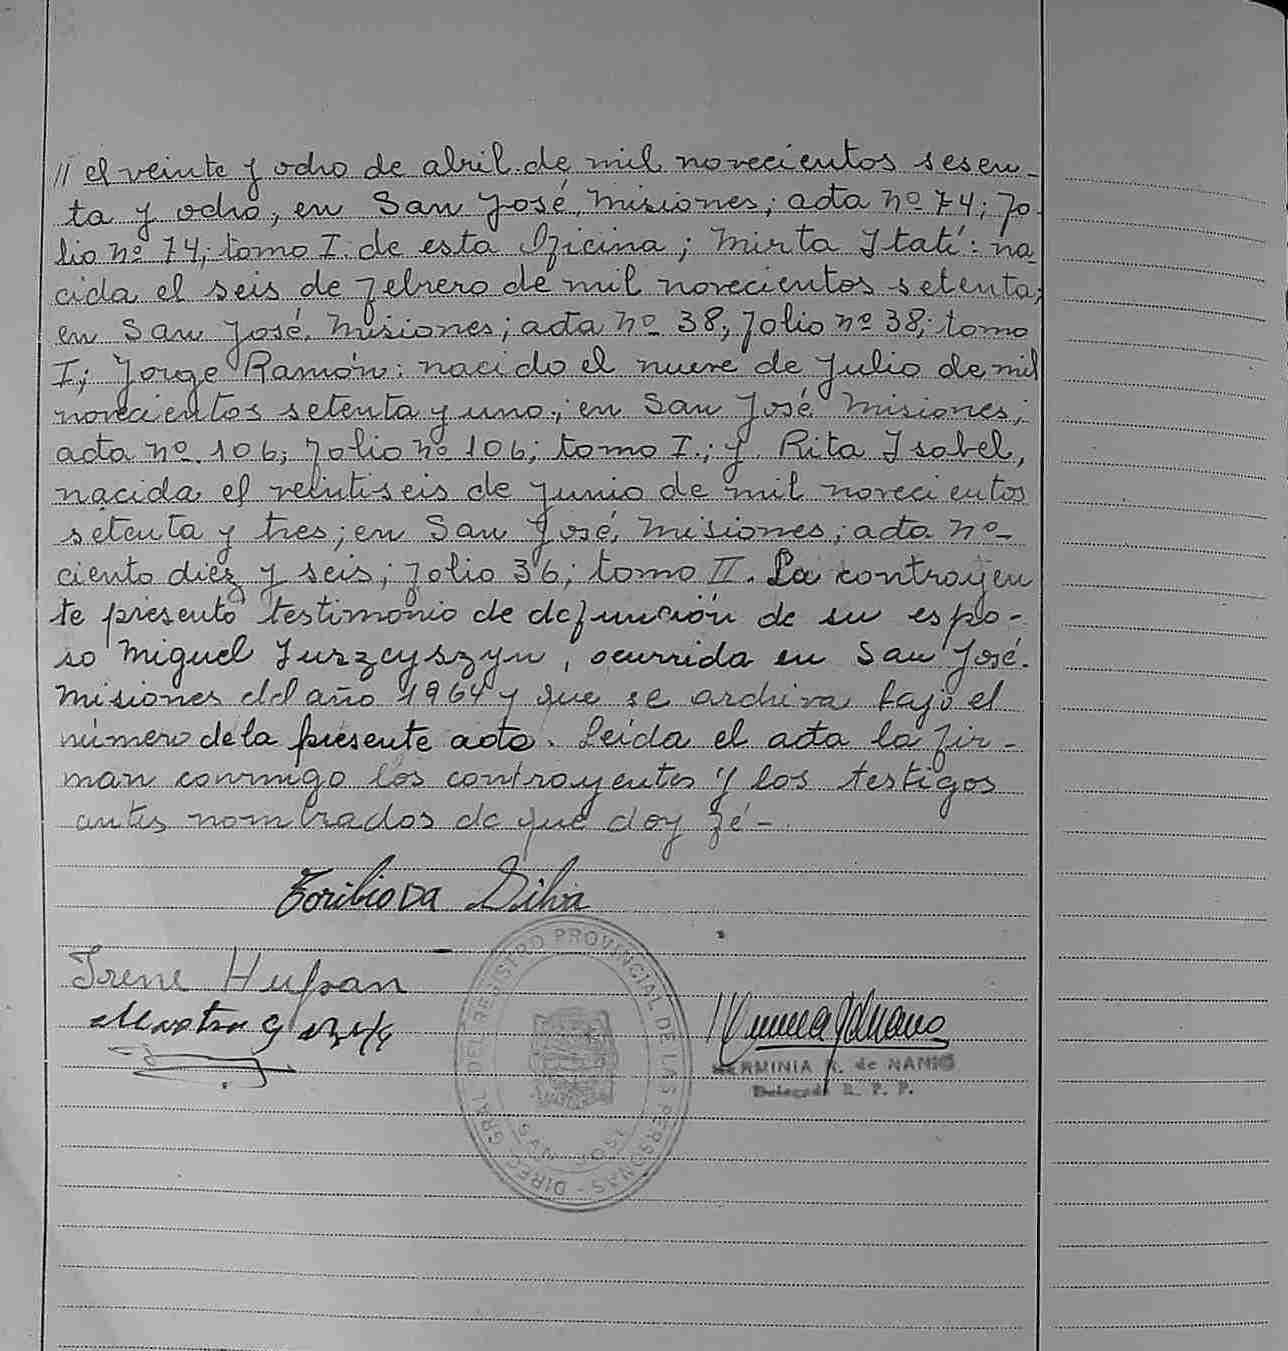 // el veinte y ocho de abril de mil novecientos sesen-
ta y ocho, en San José, Misiones; acta nº 74; fo-
lio nº 74; tomo I. de esta Oficina; Mirta Itatí: na-
cida el seis de febrero de mil novecientos setenta;
en San José. Misiones; acta nº 38, folio nº 38; tomo
I; Jorge Ramón: nacido el nueve de Julio de mil
novecientos setenta y uno; en San José Misiones;
acta nº 106; folio nº 106; tomo I.; y Rita Isabel,
nacida el veintiseis de junio de mil novecientos
setenta y tres; en San José, Misiones; acta nº-
ciento diez y seis; folio 36; tomo II. La contrayen
te presentó testimonio de defunción de su espo-
so Miguel Jurzcyszyn, ocurrida en San José.
Misiones del año 1964 y que se archiva bajo el
número de la presente acta. Leída el acta la fir-
man conmigo los contrayentes y los testigos
antes nombrados de que doy fé-
Toribio Da Silva
Irene
DIREC. GRAL. DEL REGISTRO PROVINCIAL DE LAS PERSONAS -
SAN JOSE
HERMINIA R. de NANIO
Delegada R. P. P.